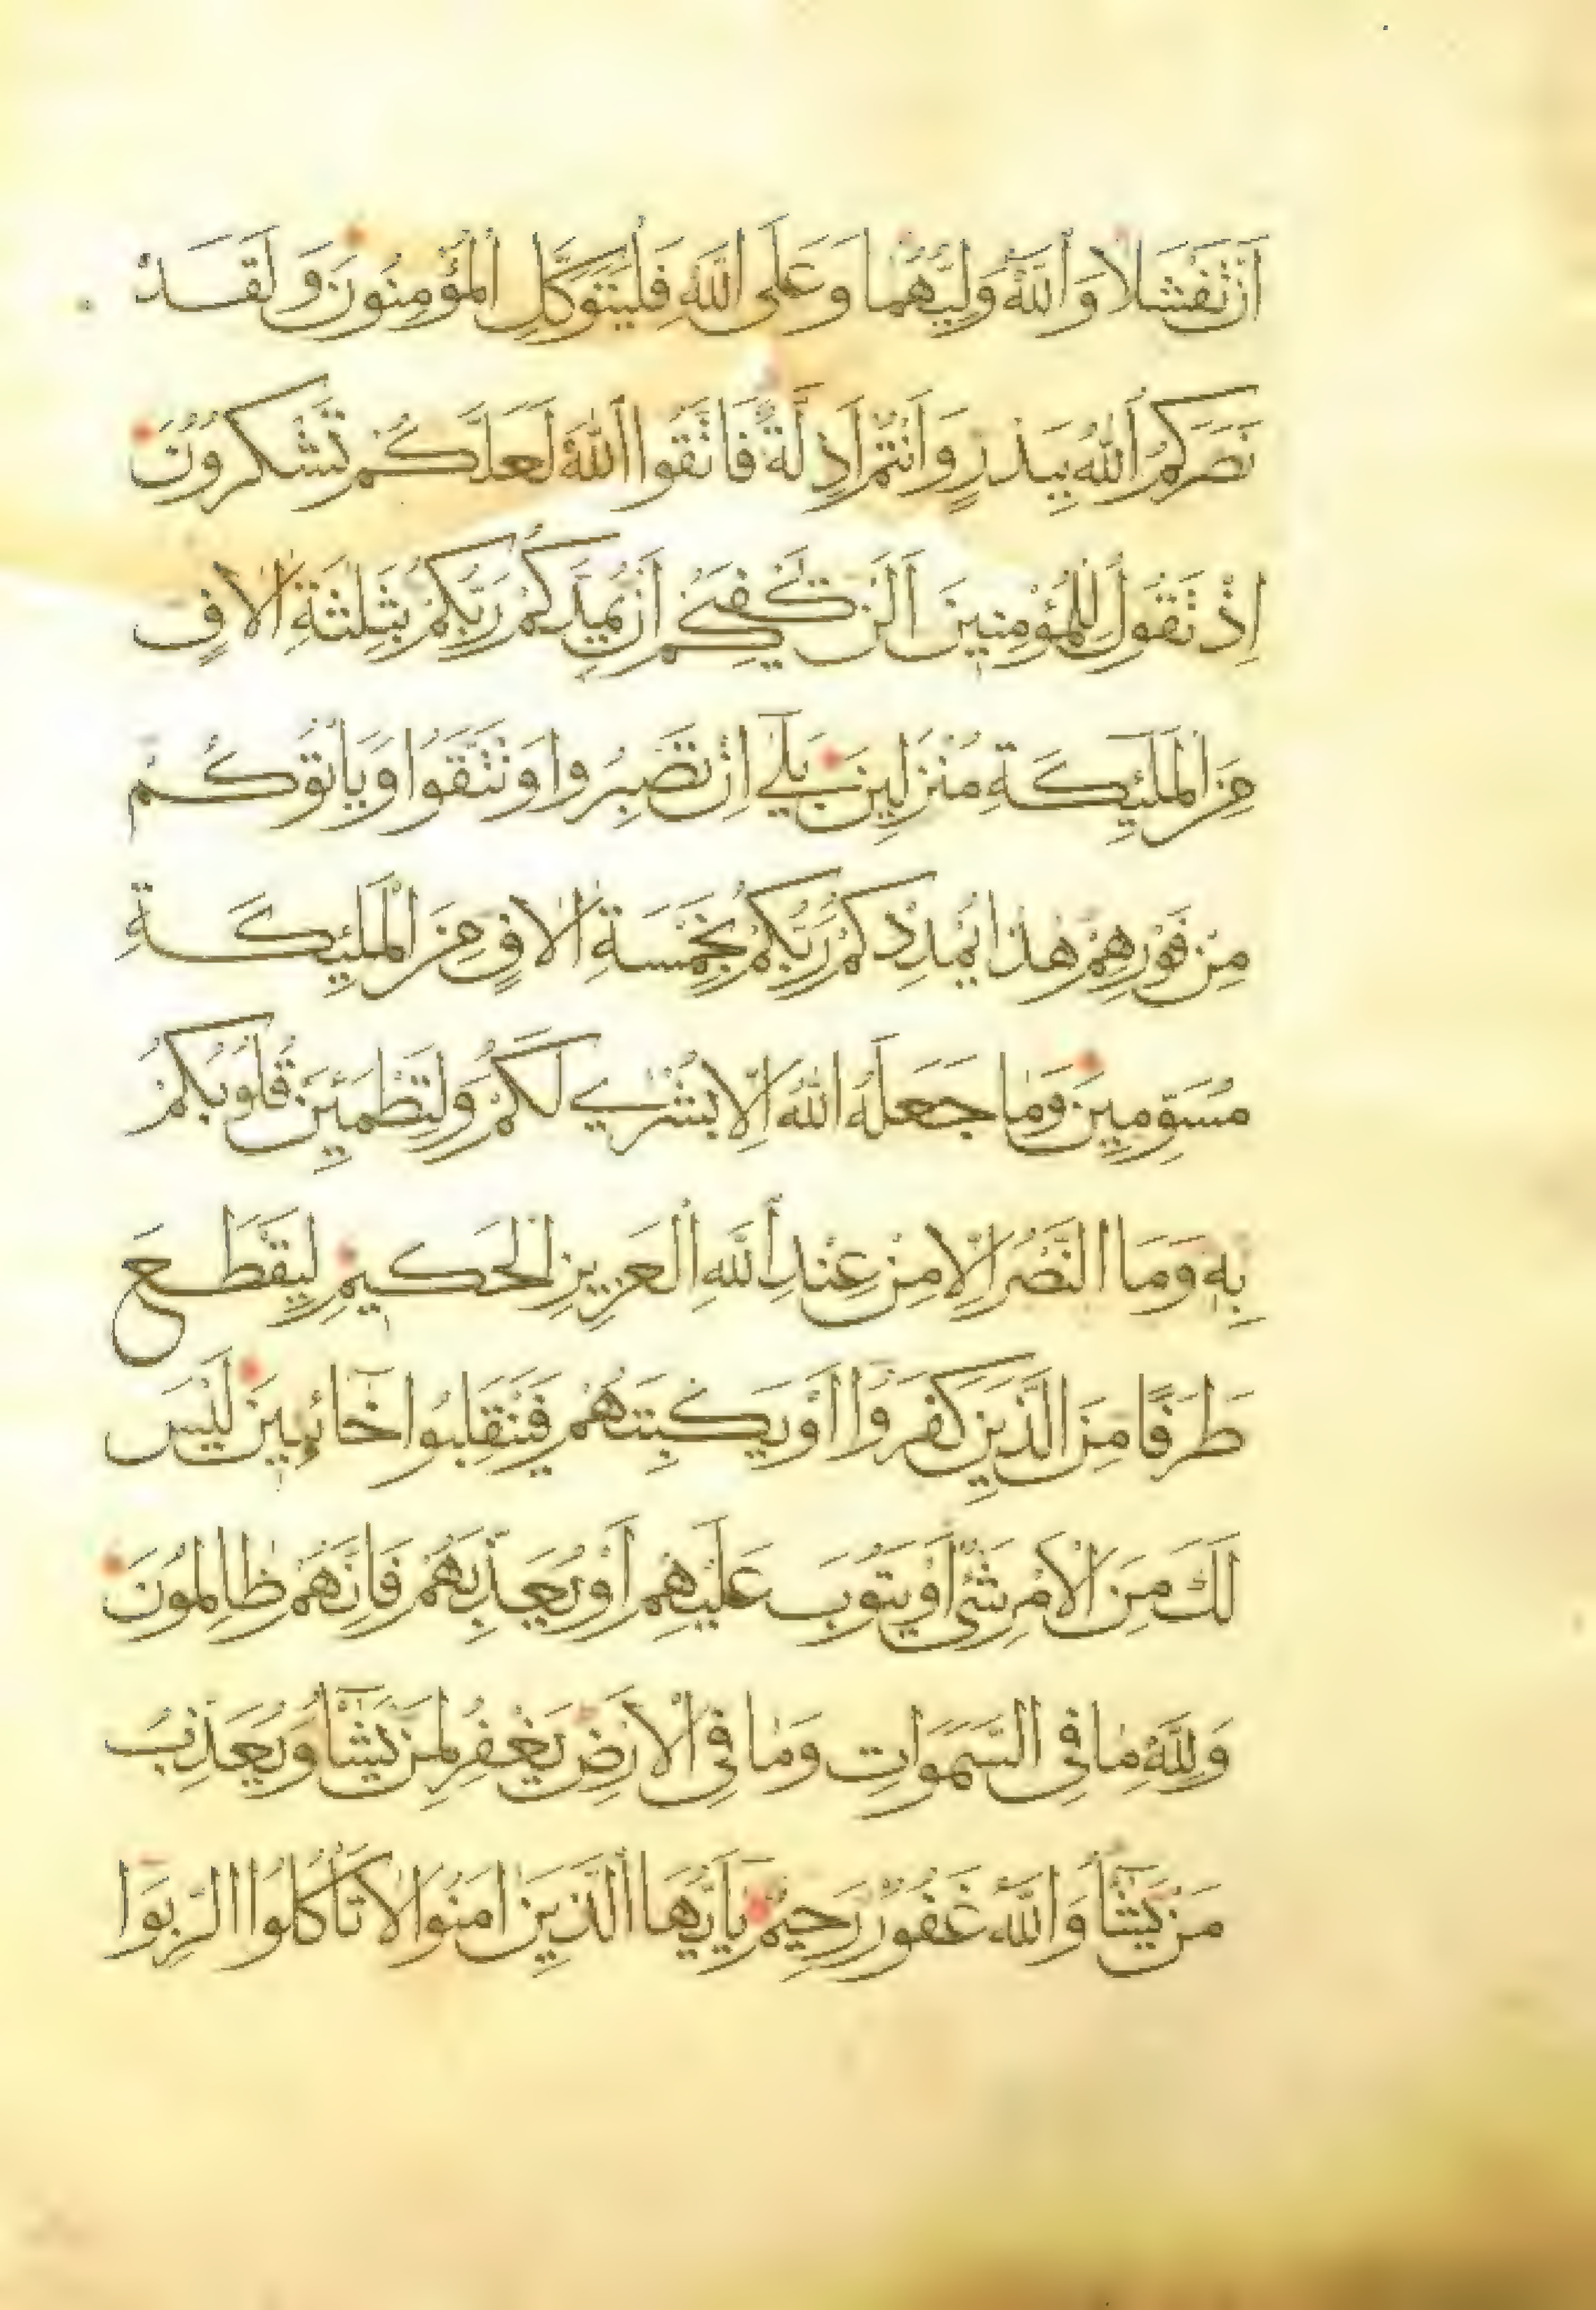 اَنْ تَفْشَلَا وَاللّٰهُ وَلِيُّهُمَا وَعَلَى اللّٰهِ فَلْيَتَوَكَّلِ الْمُؤْمِنُونَ وَلَقَدْ
نَصَرَكُمُ اللّٰهُ بِبَدْرٍ وَاَنْتُمْ اَذِلَّةٌ فَاتَّقُوا اللّٰهَ لَعَلَّكُمْ تَشْكُرُونَ
اِذْ تَقُولُ لِلْمُؤْمِنِينَ اَلَنْ يَكْفِيَكُمْ اَنْ يُمِدَّكُمْ رَبُّكُمْ بِثَلٰثَةِ اٰلَافٍ
مِنَ الْمَلٰئِكَةِ مُنْزَلِينَ بَلٰي اِنْ تَصْبِرُوا وَتَتَّقُوا وَيَاْتُوكُمْ
مِنْ فَوْرِهِمْ هٰذَا يُمْدِدْكُمْ رَبُّكُمْ بِخَمْسَةِ اٰلَافٍ مِنَ الْمَلٰئِكَةِ
مُسَوِّمِينَ وَمَا جَعَلَهُ اللّٰهُ اِلَّا بُشْرٰي لَكُمْ وَلِتَطْمَئِنَّ قُلُوبُكُمْ
بِهٖ وَمَا النَّصْرُ اِلَّا مِنْ عِنْدِ اللّٰهِ الْعَزِيزِ الْحَكِيمِ لِيَقْطَعَ
طَرَفًا مِنَ الَّذِينَ كَفَرُوا اَوْ يَكْبِتَهُمْ فَيَنْقَلِبُوا خَائِبِينَ لَيْسَ
لَكَ مِنَ الْاَمْرِ شَيْءٌ اَوْ يَتُوبَ عَلَيْهِمْ اَوْ يُعَذِّبَهُمْ فَاِنَّهُمْ ظَالِمُونَ
وَلِلّٰهِ مَا فِي السَّمٰوَاتِ وَمَا فِي الْاَرْضِ يَغْفِرُ لِمَنْ يَشَآءُ وَيُعَذِّبُ
مَنْ يَشَآءُ وَاللّٰهُ غَفُورٌ رَحِيمٌ يَآاَيُّهَا الَّذِينَ اٰمَنُوا لَا تَاْكُلُوا الرِّبَوا